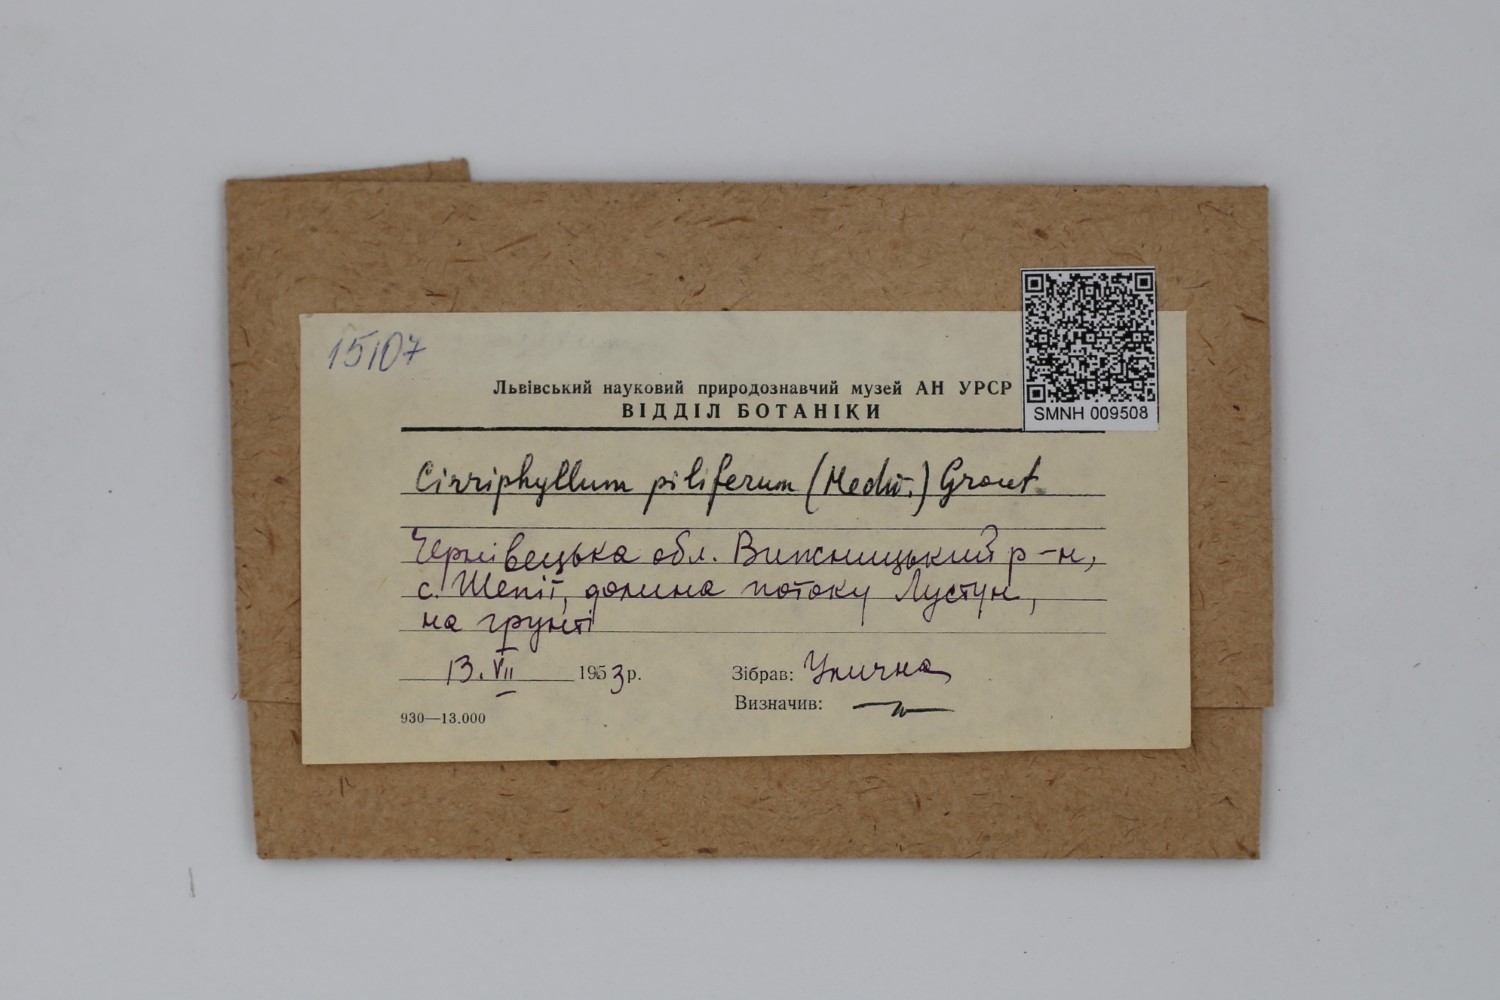 15107
Львівський науковий природознавчий музей АН УРСР
ВІДДІЛ БОТАНІКИ
SMNH 009508
Cirriphyllum piliferum (Hedw.) Grout
Чернівецька обл. Вижницький р-н,
с. Шепіт, долина потоку Лустун,
на грунті
13. VII 1953 р.
Зібрав: Улична
Визначив: —"—
930—13.000